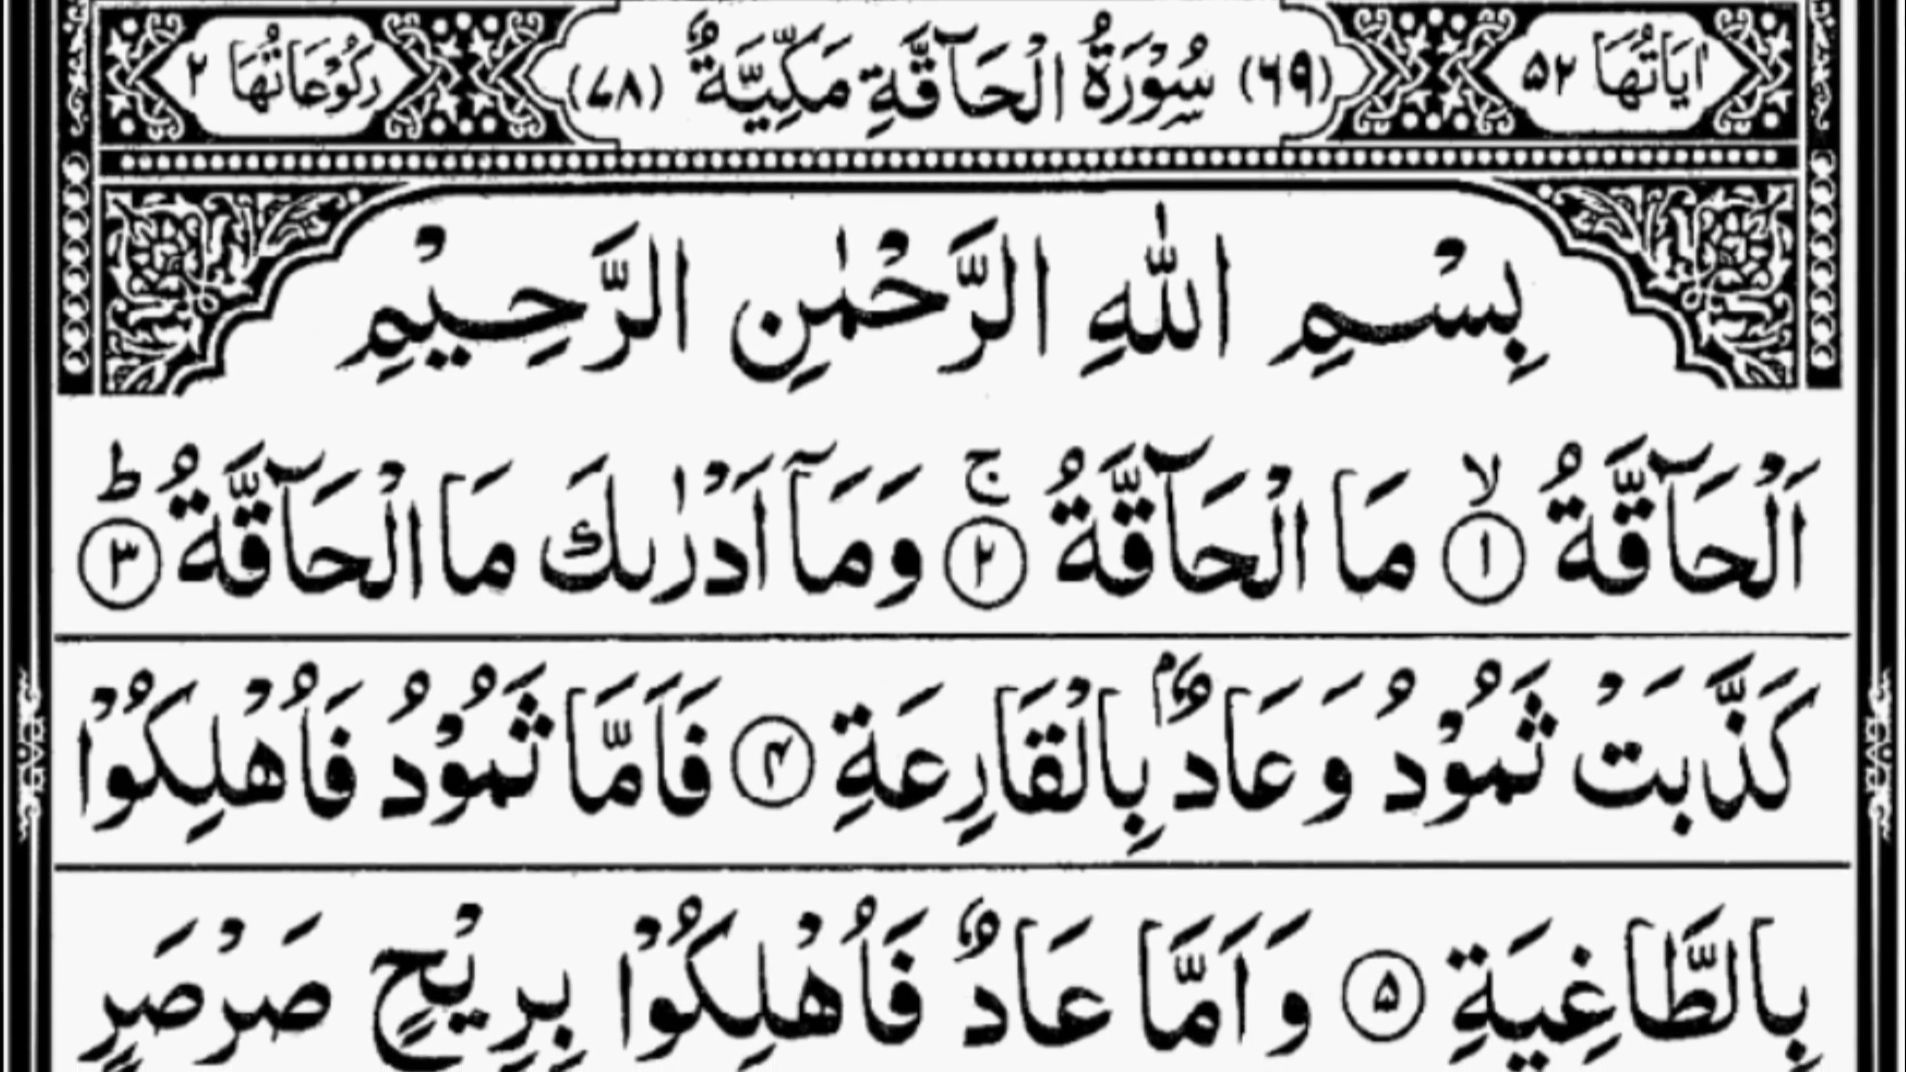 اٰيَاتُهَا ٥٢ (٦٩) سُوْرَةُ الْحَآقَّةِ مَكِّيَّةٌ (٧٨) رُكُوْعَاتُهَا ٢
بِسْمِ اللّٰهِ الرَّحْمٰنِ الرَّحِيْمِ
اَلْحَآقَّةُ ۙ ١ مَا الْحَآقَّةُ ۚ ٢ وَمَآ اَدْرٰىكَ مَا الْحَآقَّةُ ؕ ٣
كَذَّبَتْ ثَمُوْدُ وَعَادٌۢ بِالْقَارِعَةِ ٤ فَاَمَّا ثَمُوْدُ فَاُهْلِكُوْا
بِالطَّاغِيَةِ ٥ وَاَمَّا عَادٌ فَاُهْلِكُوْا بِرِيْحٍ صَرْصَرٍ